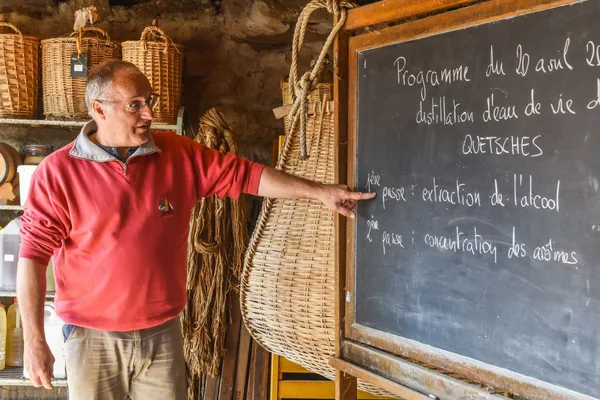 Programme du 20 avril
distillation d'eau de vie
QUETSCHES
1ère passe : extraction de l'alcool
2ème passe : concentration des arômes